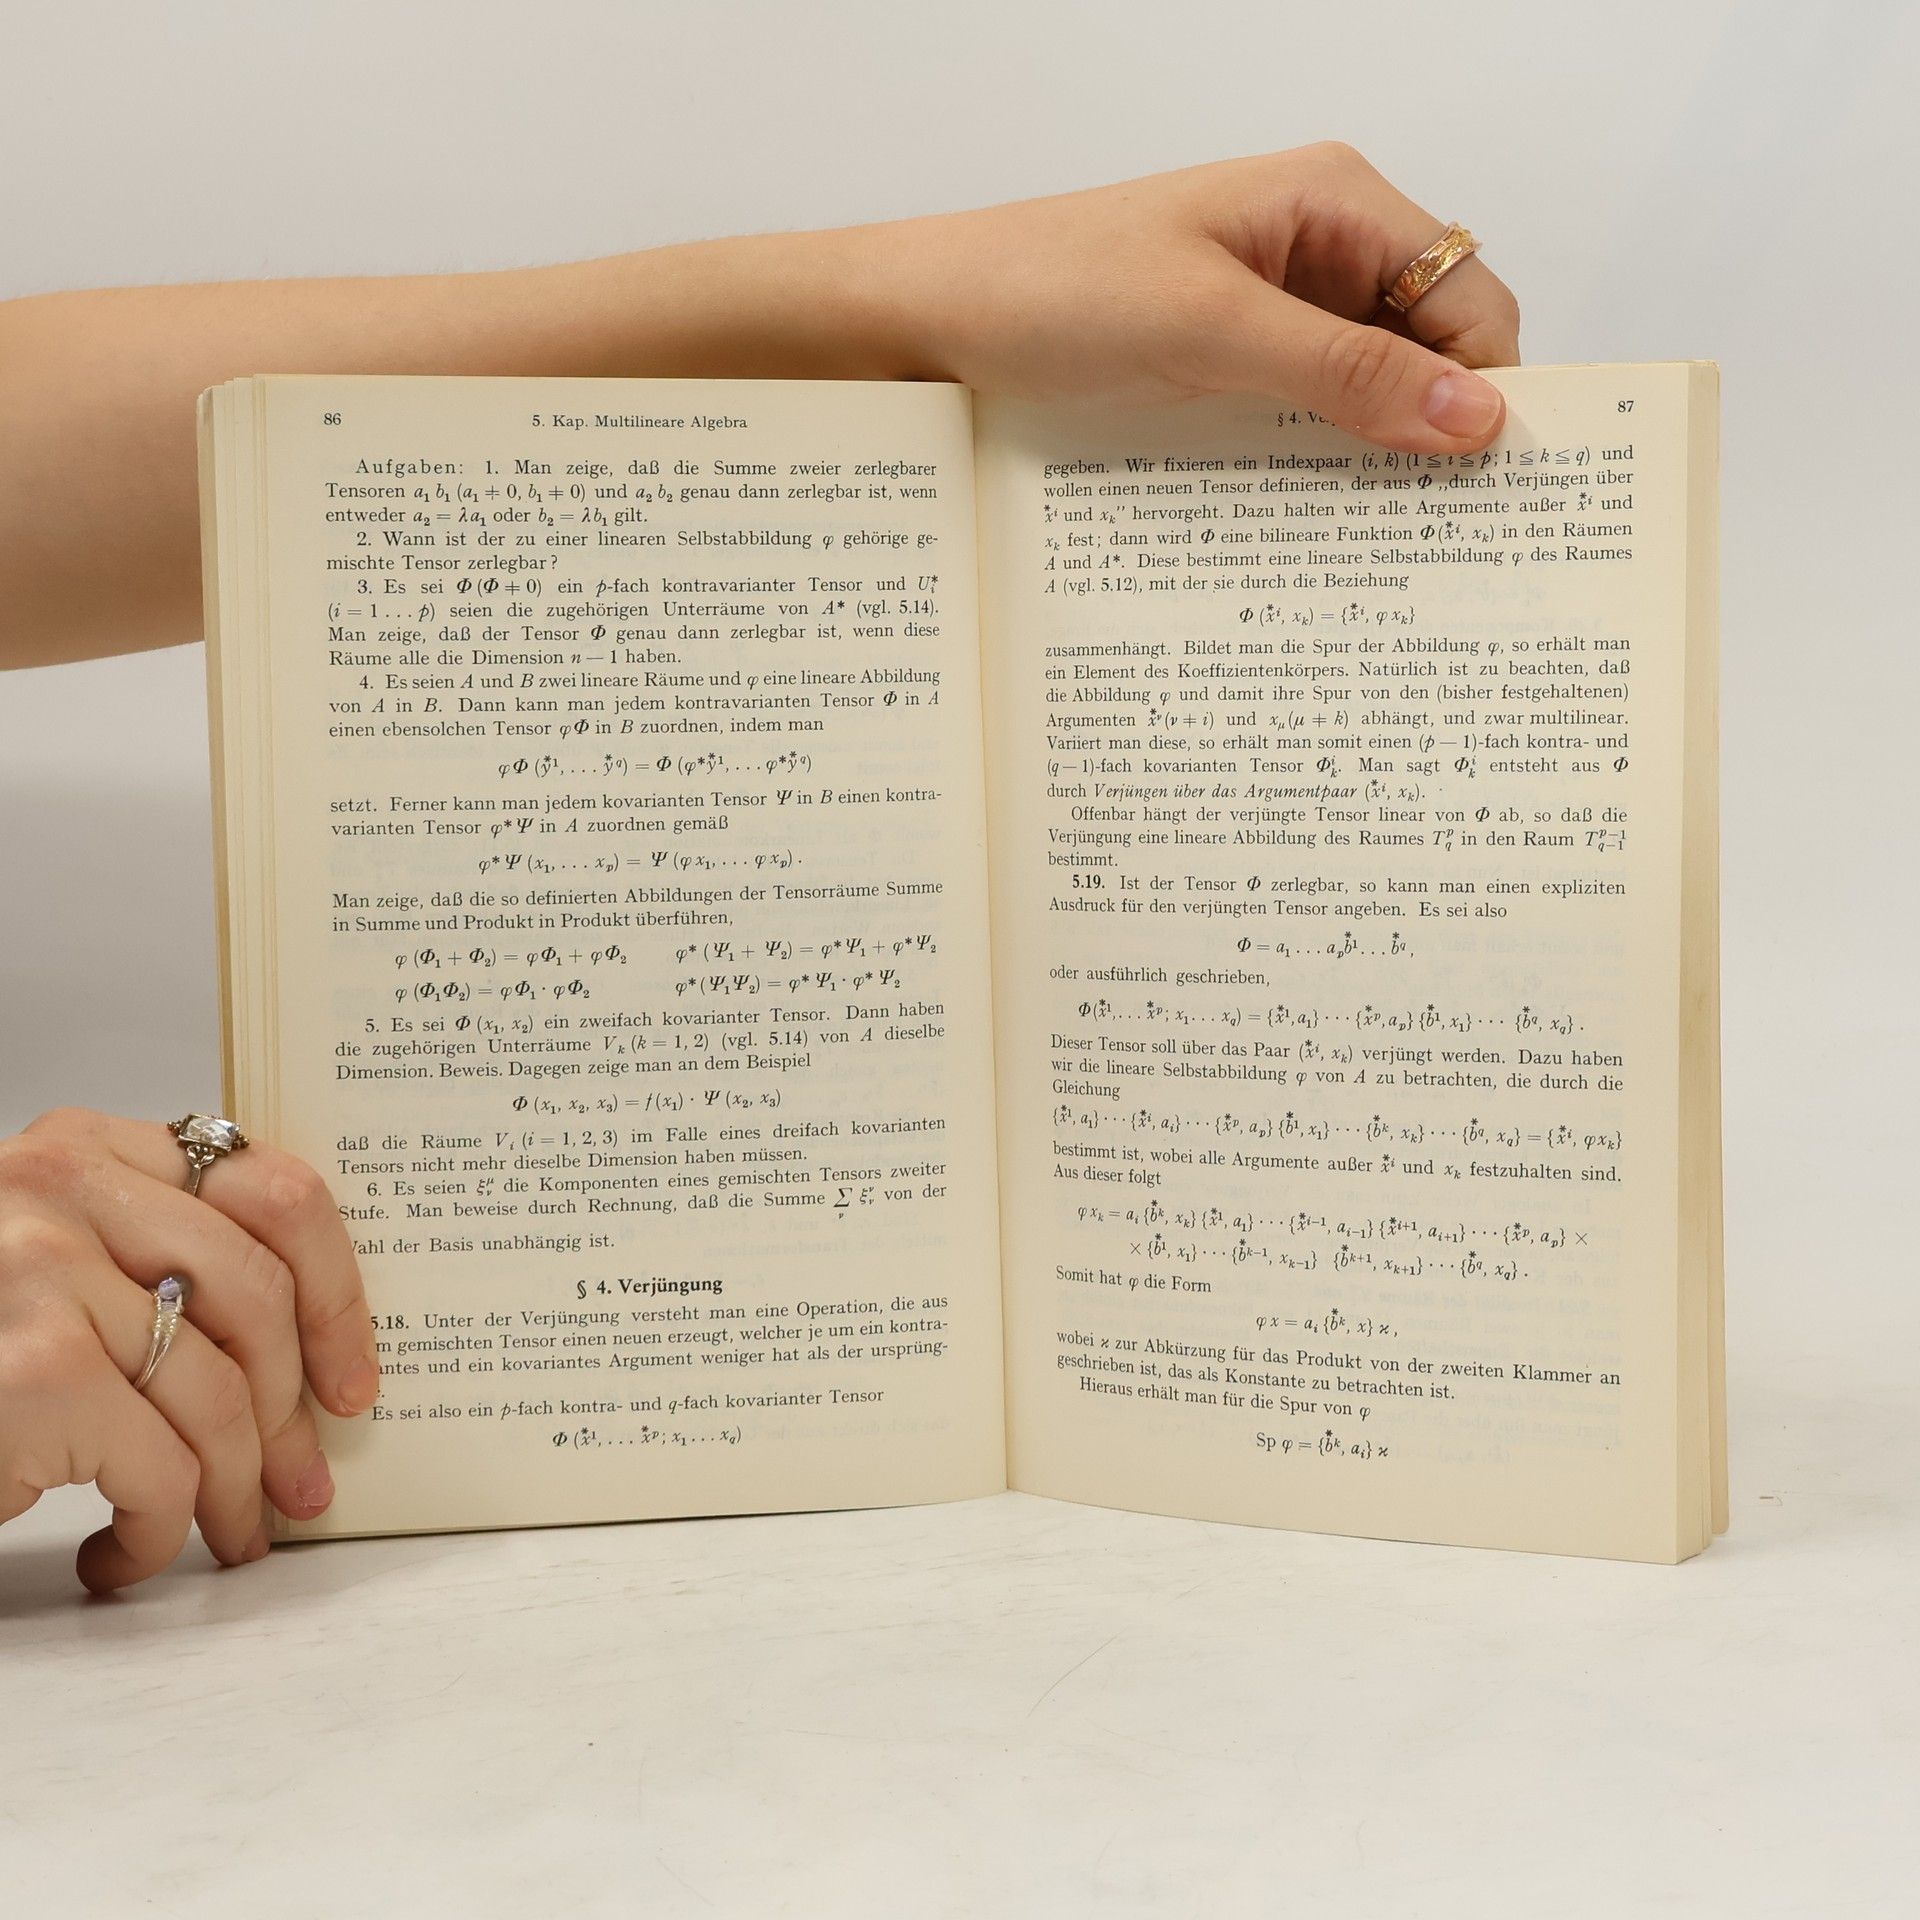 86
5. Kap. Multilineare Algebra
Aufgaben: 1. Man zeige, daß die Summe zweier zerlegbarer
Tensoren a₁ b₁ (a₁ ≠ 0, b₁ ≠ 0) und a₂ b₂ genau dann zerlegbar ist, wenn
entweder a₂ = λa₁ oder b₂ = λb₁ gilt.
2. Wann ist der zu einer linearen Selbstabbildung φ gehörige ge-
mischte Tensor zerlegbar?
3. Es sei Φ (Φ ≠ 0) ein p-fach kontravarianter Tensor und U*ᵢ
(i = 1 . . . p) seien die zugehörigen Unterräume von A* (vgl. 5.14).
Man zeige, daß der Tensor Φ genau dann zerlegbar ist, wenn diese
Räume alle die Dimension n — 1 haben.
4. Es seien A und B zwei lineare Räume und φ eine lineare Abbildung
von A in B. Dann kann man jedem kontravarianten Tensor Φ in A
einen ebensolchen Tensor φΦ in B zuordnen, indem man
φΦ (y*¹, . . . y*q) = Φ (φ*y*¹, . . . φ*y*q)
setzt. Ferner kann man jedem kovarianten Tensor Ψ in B einen kontra-
varianten Tensor φ*Ψ in A zuordnen gemäß
φ*Ψ (x₁, . . . xₚ) = Ψ (φx₁, . . . φxₚ) .
Man zeige, daß die so definierten Abbildungen der Tensorräume Summe
in Summe und Produkt in Produkt überführen,
φ (Φ₁ + Φ₂) = φΦ₁ + φΦ₂ φ* (Ψ₁ + Ψ₂) = φ*Ψ₁ + φ*Ψ₂
φ (Φ₁Φ₂) = φΦ₁ · φΦ₂ φ* (Ψ₁Ψ₂) = φ*Ψ₁ · φ*Ψ₂
5. Es sei Φ (x₁, x₂) ein zweifach kovarianter Tensor. Dann haben
die zugehörigen Unterräume Vₖ (k = 1, 2) (vgl. 5.14) von A dieselbe
Dimension. Beweis. Dagegen zeige man an dem Beispiel
Φ (x₁, x₂, x₃) = f(x₁) · Ψ (x₂, x₃)
daß die Räume Vᵢ (i = 1, 2, 3) im Falle eines dreifach kovarianten
Tensors nicht mehr dieselbe Dimension haben müssen.
6. Es seien ξ^μ_ν die Komponenten eines gemischten Tensors zweiter
Stufe. Man beweise durch Rechnung, daß die Summe ∑_ν ξ^ν_ν von der
Wahl der Basis unabhängig ist.
§ 4. Verjüngung
5.18. Unter der Verjüngung versteht man eine Operation, die aus
m gemischten Tensor einen neuen erzeugt, welcher je um ein kontra-
antes und ein kovariantes Argument weniger hat als der ursprüng-
Es sei also ein p-fach kontra- und q-fach kovarianter Tensor
Φ (x*¹, . . . x*ᵖ; x₁ . . . x_q)
§ 4. Ve
87
gegeben. Wir fixieren ein Indexpaar (i, k) (1 ≦ i ≦ p; 1 ≦ k ≦ q) und
wollen einen neuen Tensor definieren, der aus Φ „durch Verjüngen über
x*ⁱ und xₖ” hervorgeht. Dazu halten wir alle Argumente außer x*ⁱ und
xₖ fest; dann wird Φ eine bilineare Funktion Φ(x*ⁱ, xₖ) in den Räumen
A und A*. Diese bestimmt eine lineare Selbstabbildung φ des Raumes
A (vgl. 5.12), mit der sie durch die Beziehung
Φ (x*ⁱ, xₖ) = {x*ⁱ, φxₖ}
zusammenhängt. Bildet man die Spur der Abbildung φ, so erhält man
ein Element des Koeffizientenkörpers. Natürlich ist zu beachten, daß
die Abbildung φ und damit ihre Spur von den (bisher festgehaltenen)
Argumenten x*^ν (ν ≠ i) und x_μ (μ ≠ k) abhängt, und zwar multilinear.
Variiert man diese, so erhält man somit einen (p — 1)-fach kontra- und
(q — 1)-fach kovarianten Tensor Φⁱₖ. Man sagt Φⁱₖ entsteht aus Φ
durch Verjüngen über das Argumentpaar (x*ⁱ, xₖ).
Offenbar hängt der verjüngte Tensor linear von Φ ab, so daß die
Verjüngung eine lineare Abbildung des Raumes T^p_q in den Raum T^{p-1}_{q-1}
bestimmt.
5.19. Ist der Tensor Φ zerlegbar, so kann man einen expliziten
Ausdruck für den verjüngten Tensor angeben. Es sei also
Φ = a₁ . . . aₚb*¹ . . . b*q ,
oder ausführlich geschrieben,
Φ(x*¹, . . . x*ᵖ; x₁ . . . x_q) = {x*¹, a₁} · · · {x*ᵖ, aₚ} {b*¹, x₁} · · · {b*q, x_q} .
Dieser Tensor soll über das Paar (x*ⁱ, xₖ) verjüngt werden. Dazu haben
wir die lineare Selbstabbildung φ von A zu betrachten, die durch die
Gleichung
{x*¹, a₁} · · · {x*ⁱ, aᵢ} · · · {x*ᵖ, aₚ} {b*¹, x₁} · · · {b*ᵏ, xₖ} · · · {b*q, x_q} = {x*ⁱ, φxₖ}
bestimmt ist, wobei alle Argumente außer x*ⁱ und xₖ festzuhalten sind.
Aus dieser folgt
φxₖ = aᵢ {b*ᵏ, xₖ} {x*¹, a₁} · · · {x*ⁱ⁻¹, aᵢ₋₁} {x*ⁱ⁺¹, aᵢ₊₁} · · · {x*ᵖ, aₚ} ×
× {b*¹, x₁} · · · {b*ᵏ⁻¹, xₖ₋₁} {b*ᵏ⁺¹, xₖ₊₁} · · · {b*q, x_q} .
Somit hat φ die Form
φx = aᵢ {b*ᵏ, x} ϰ ,
wobei ϰ zur Abkürzung für das Produkt von der zweiten Klammer an
geschrieben ist, das als Konstante zu betrachten ist.
Hieraus erhält man für die Spur von φ
Sp φ = {b*ᵏ, aᵢ} ϰ